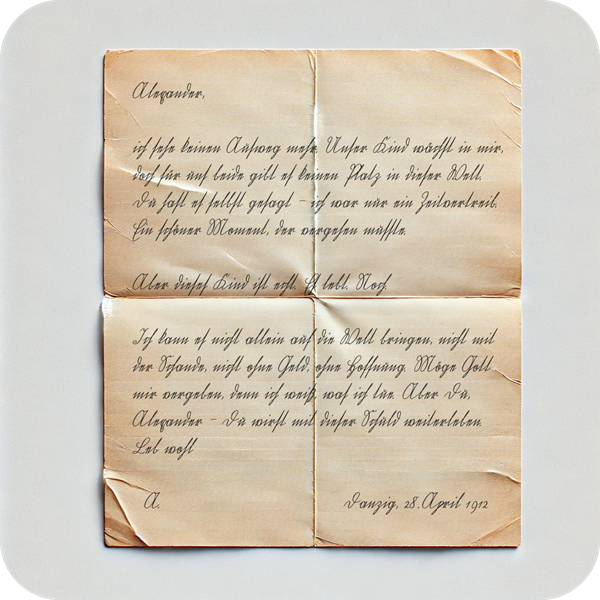 Alexander,
ich sehe keinen Ausweg mehr. Unser Kind wächst in mir,
doch für uns beide gibt es keinen Platz in dieser Welt.
Du hast es selbst gesagt – ich war nur ein Zeitvertreib.
Ein schöner Moment, der vergehen musste.
Aber dieses Kind ist echt. Es lebt. Noch.
Ich kann es nicht allein auf die Welt bringen, nicht mit
der Schande, nicht ohne Geld, ohne Hoffnung. Möge Gott
mir vergeben, denn ich weiß, was ich tue. Aber Du,
Alexander – Du wirst mit dieser Schuld weiterleben.
Leb wohl
A.
Danzig, 28. April 1912